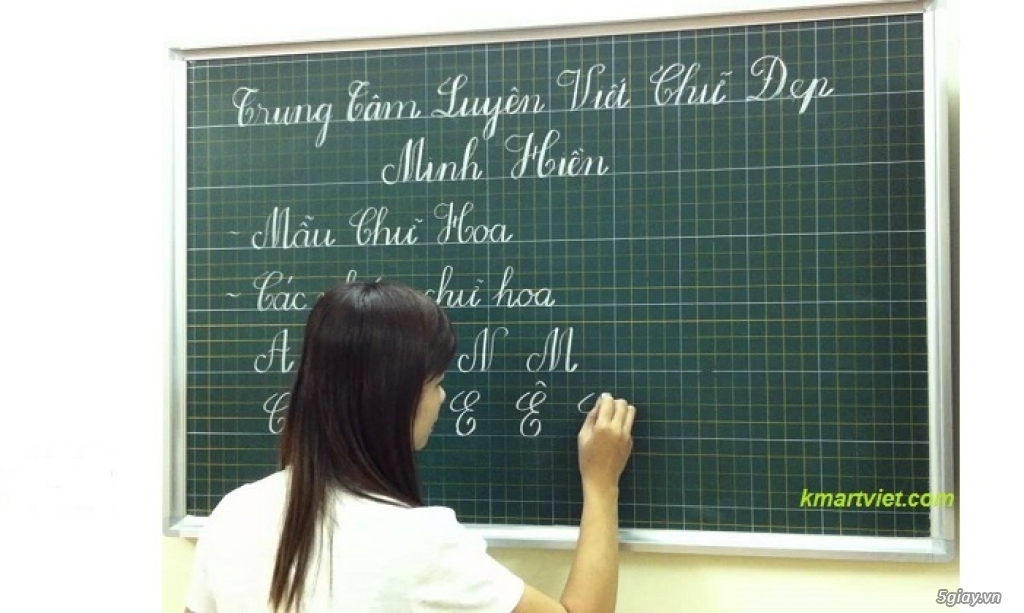 Trung Tâm Luyện Viết Chữ Đẹp
Minh Hiền
~ Mẫu Chữ Hoa
~ Các chữ hoa
A N M
E Ê
kmartviet.com
5giay.vn